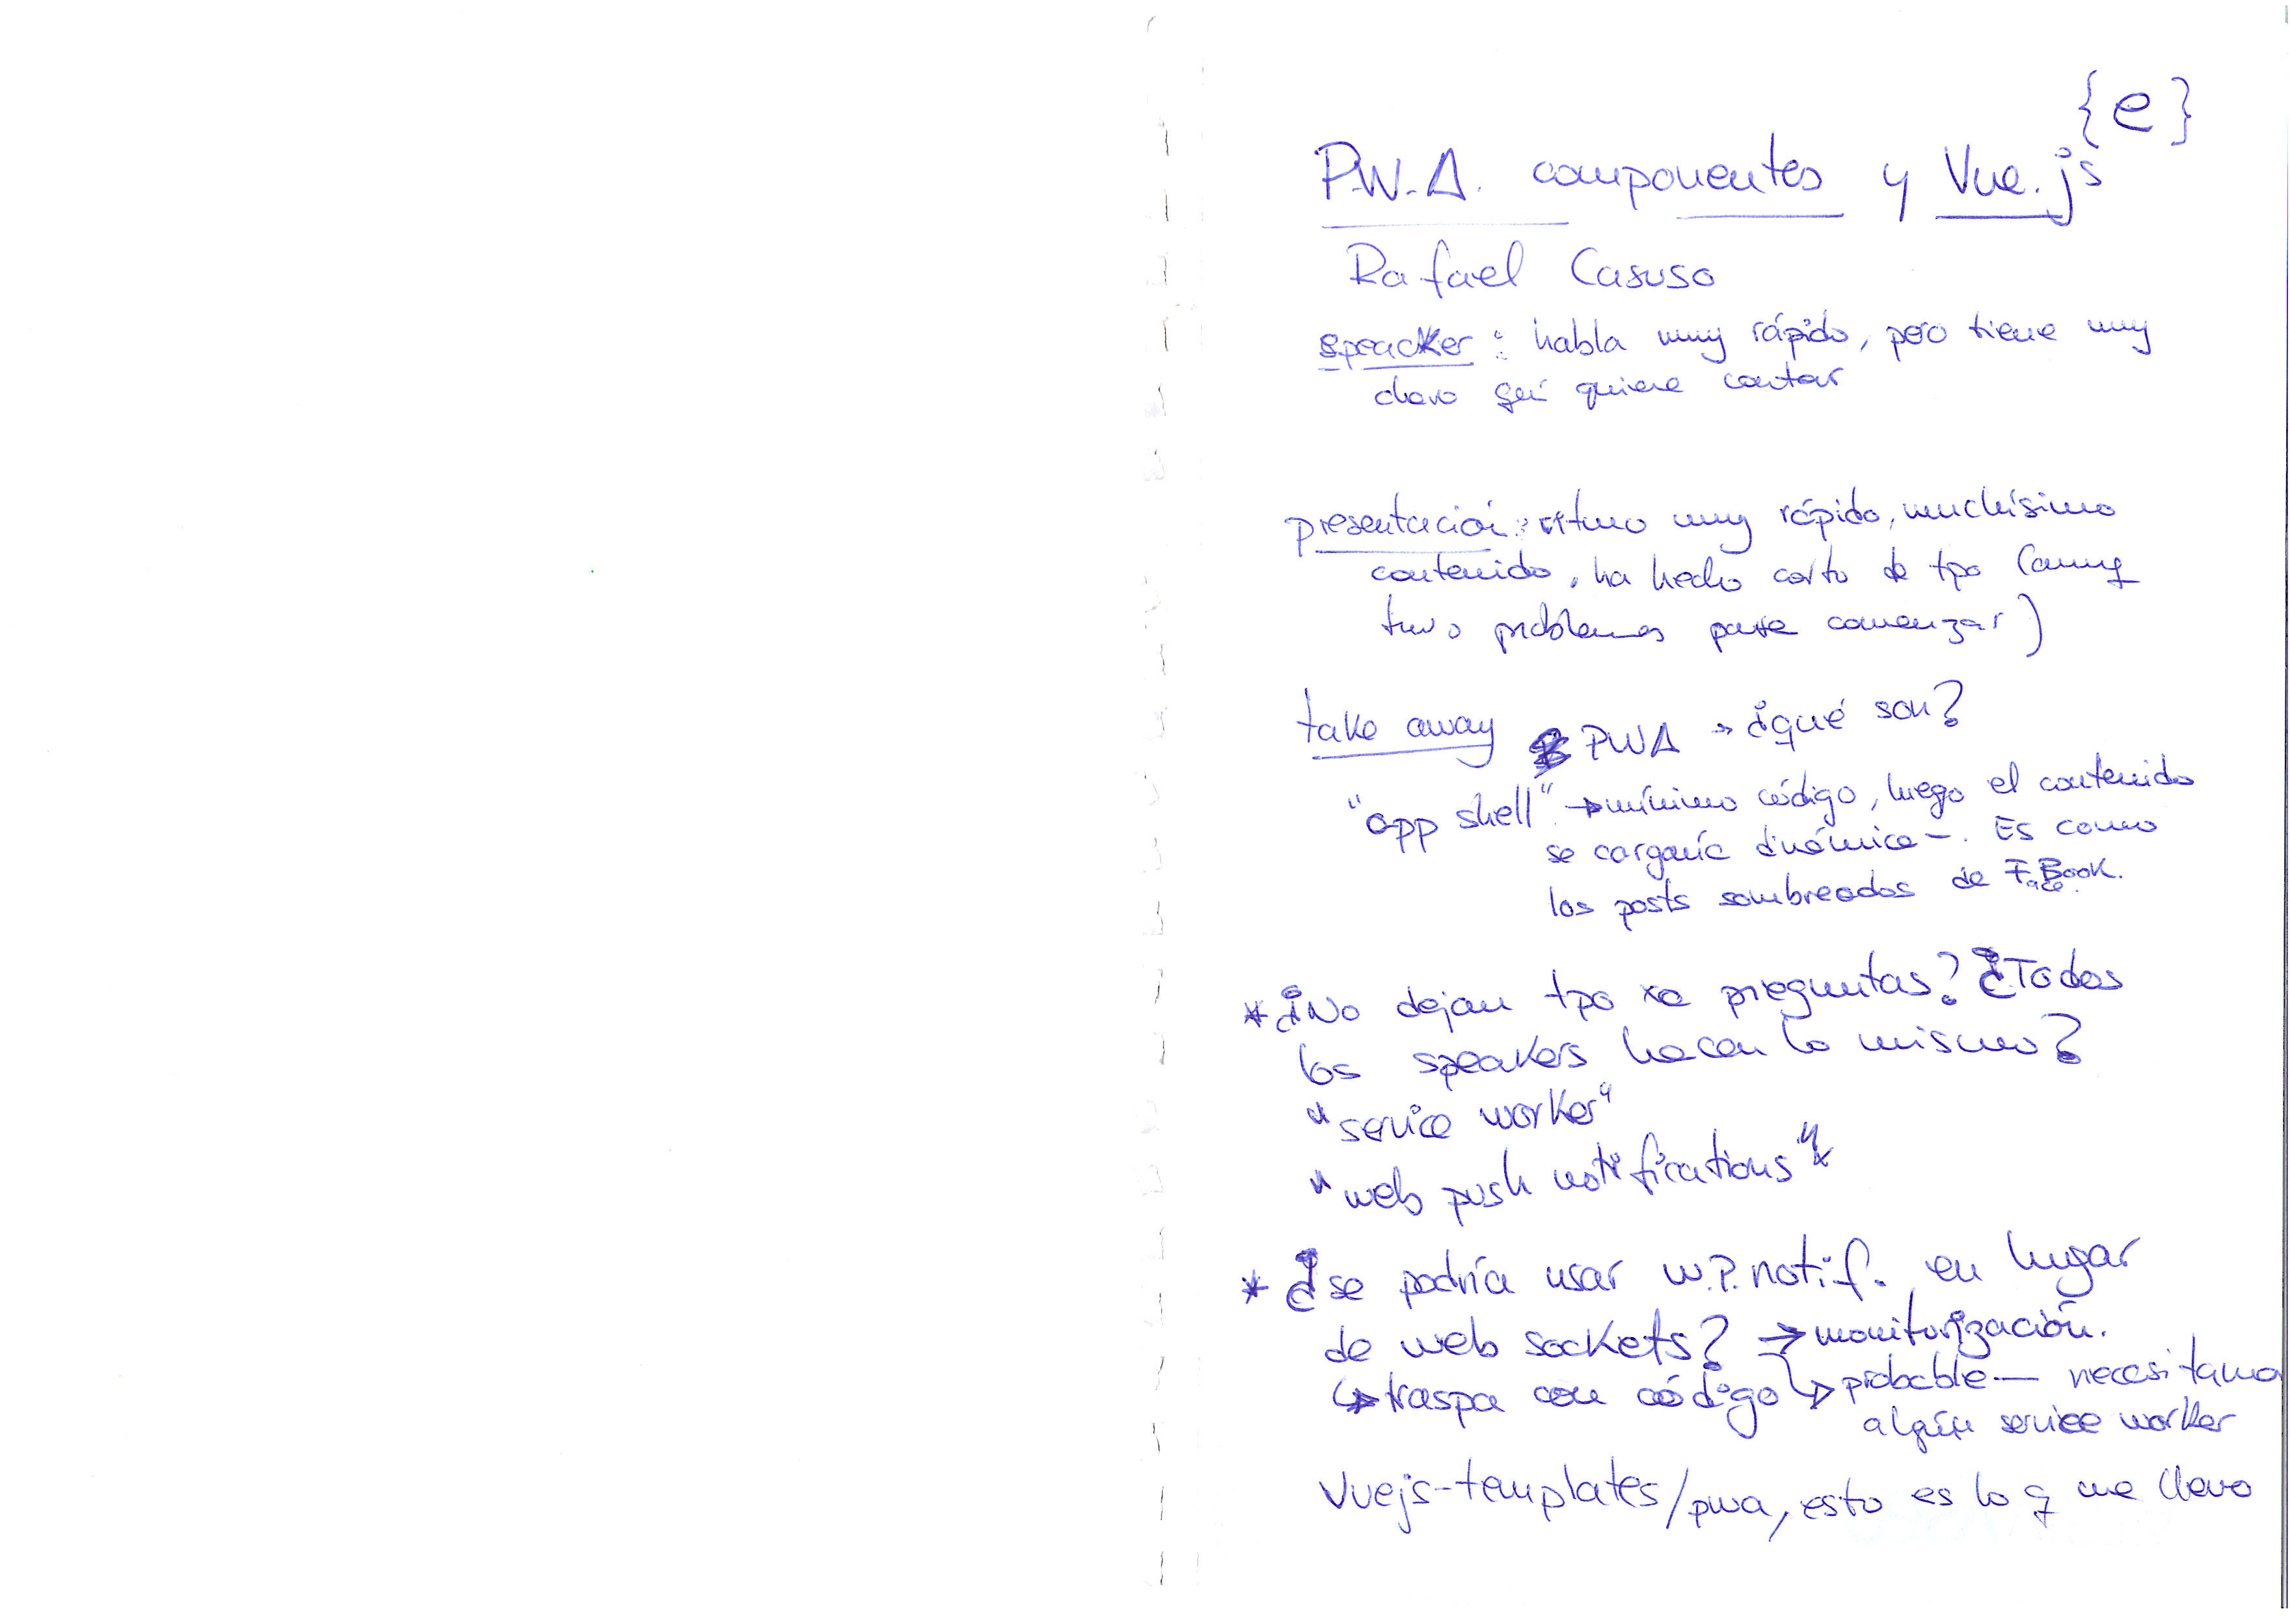 {e}
P.W.A. componentes y Vue.js
Rafael Casuso
speacker: habla muy rápido, pero tiene muy
claro qué quiere contar
presentación: ritmo muy rápido, muchísimo
contenido, ha hecho corto de tpo (aunq
tuvo problemas para comenzar)
take away PWA → ¿qué son?
"app shell" → mínimo código, luego el contenido
se cargaría dinámica—. Es como
los posts sombreados de FaceBook.
* ¿No dejan tpo xa preguntas? ¿Todos
los speakers hacen lo mismo?
"service worker"
"web push notifications"
* ¿se podría usar w.P.notif. en lugar
de web sockets? → monitorización.
↳ traspa con código ↳ probable— necesitamo
algún service worker
Vuejs-templates/pwa, esto es lo q me llevo